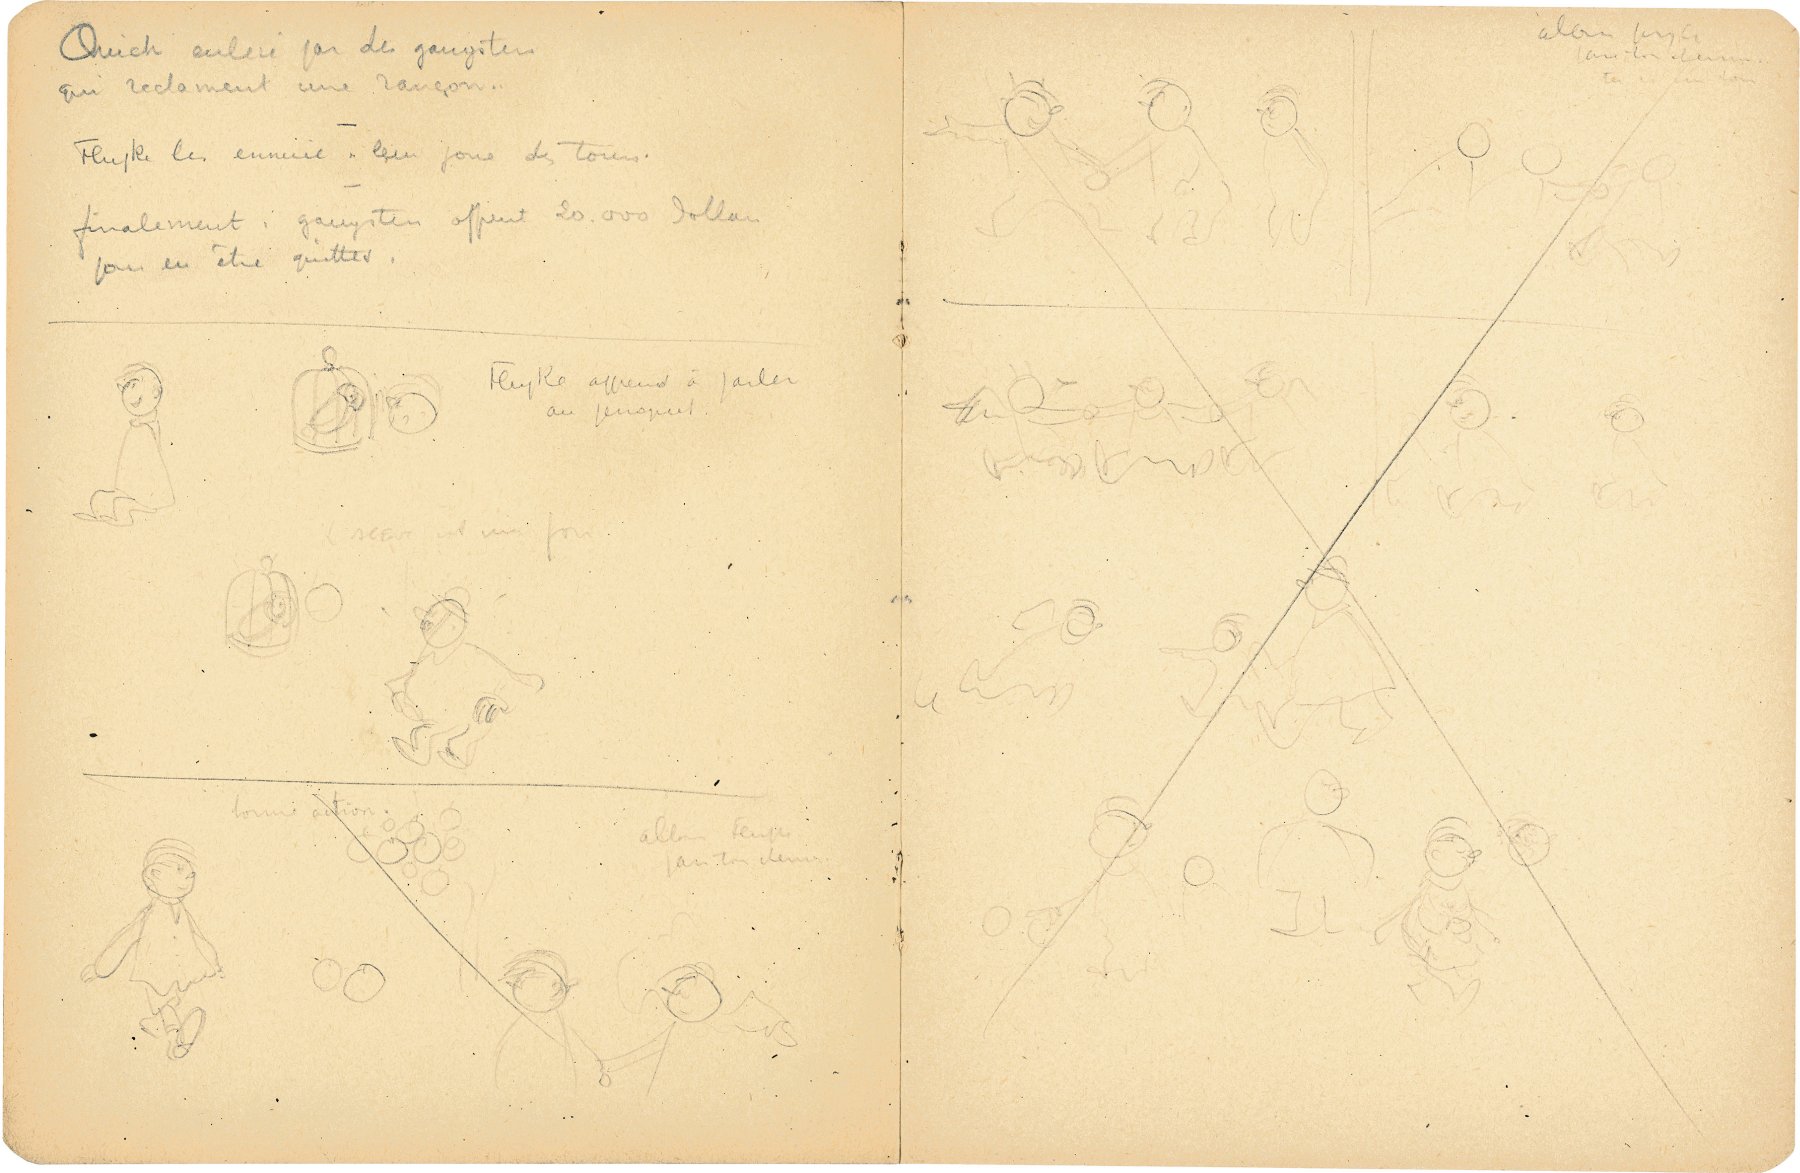 Quick enlevé par des gangsters
qui réclament une rançon..
Flupke les ennuie, leur joue des tours.
finalement : gangsters offrent 20.000 dollars
pour en être quittes.
Flupke apprend à parler
au perroquet.
bonne action.
allons Flupke
fais ton devoir
allons
fais ton devoir